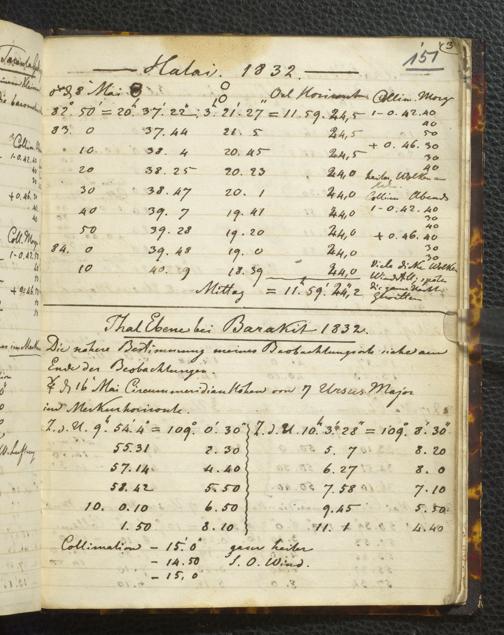 151
Halai. 1832.
♂ d. 8 Mai Oel Horizont Collim. Morg
82° 50' = 20h 37' 22" 3. 21' 27" = 11.59. 24,5 1- 0.42.40
40
83. 0 37.44 21. 5 24,5 50
+ 0. 46. 30
10 38. 4 20. 45 24,5 30
40
20 38. 25 20. 23 24,0 heiter, Wolken
30 38. 47 20. 1 24,0 Collim Abends
1- 0. 42. 40
40 39. 7 19. 41 24,0 30
40
50 39. 28 19. 20 24,0 + 0. 46. 40
84. 0 39. 48 19. 0 24,0 30
30
10 40. 9 18. 59 24,0 Viele dicke Wolken
Mittag = 11h 59' 24",2
geritten
Thal Ebene bei Barakit 1832.
Die nähere Bestimmung meines Beobachtungsorts siehe am
Ende der Beobachtungen
d. 16 Mai Circummeridian Höhen von η Ursus Major
im Merkurhorizonte.
Z. d. U. 9h. 54. 4" = 109° 0' 30" Z. d. U. 10h 3' 28" = 109° 8' 30"
55.31 2. 30 5. 7 8. 20
57.14 4. 40 6. 27 8. 0
58. 42 5. 50 7. 58 7. 10
10. 0. 10 6. 50 9. 45 5. 50
1. 50 8. 10 11. 4. 40
Collimation - 15' 0" ganz heiter
- 14. 50 S. O. Wind.
- 15, 0